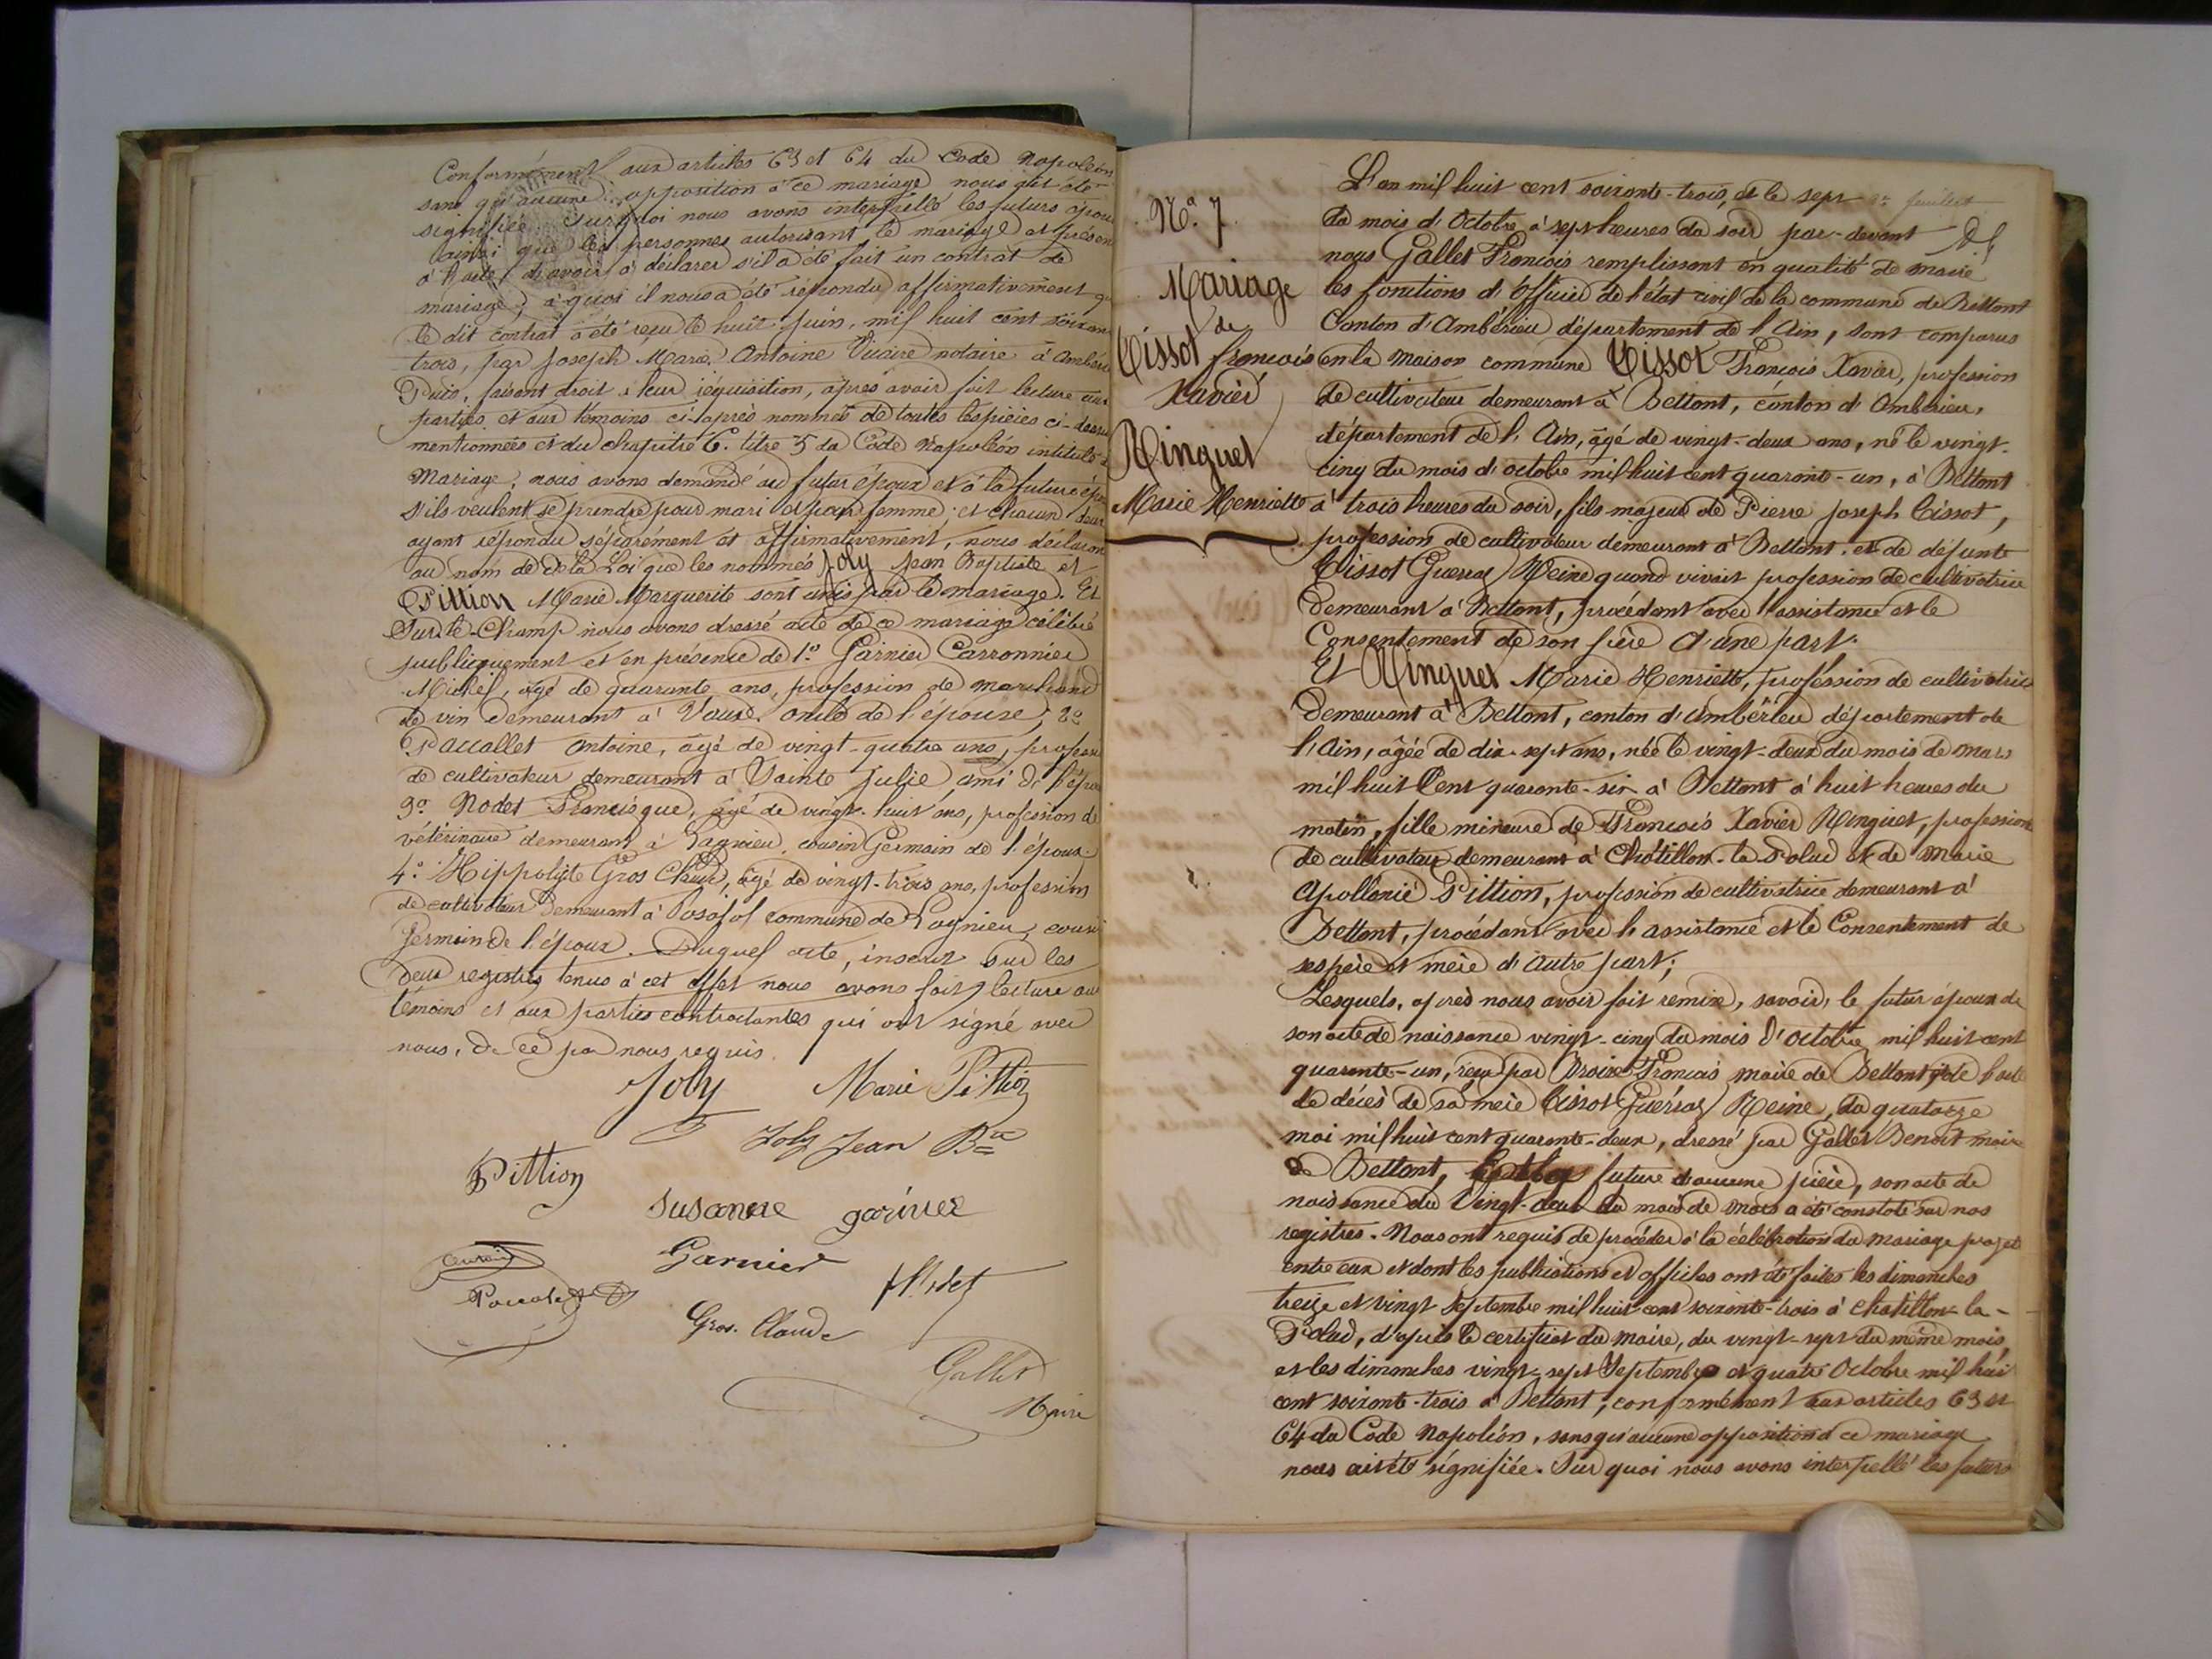 Conformément aux articles 63 et 64 du Code Napoléon
sans qu'aucune opposition à ce mariage nous ait été
signifiée. Sur quoi nous avons interpellé les futurs époux
ainsi que les personnes autorisant le mariage et présen
à l'acte d'avoir à déclarer s'il a été fait un contrat de
mariage, à quoi il nous a été répondu affirmativement q
le dit contrat a été reçu le huit juin, mil huit cent soixan
trois, par Joseph Marie Antoine Vicaire notaire à Ambéri
Puis, faisant droit à leur réquisition, après avoir fait lecture aux
parties et aux témoins ci-après nommés de toutes les pièces ci-dessus
mentionnées et du chapitre 6. titre 5 du Code Napoléon intitulé d
Mariage, nous avons demandé au futur époux et à la future épou
s'ils veulent se prendre pour mari et pour femme; et chacun d'eux
ayant répondu séparément et affirmativement, nous déclarons
au nom de de la Loi que les nommés Joly Jean Baptiste et
Pittion Marie Marguerite sont unis par le mariage. Et
Sur le-Champ nous avons dressé acte de ce mariage célébré
publiquement et en présence de 1.º Garnier Carronnier
Michel, âgé de quarante ans, profession de marchand
de vin demeurant à Vaux. oncle de l'épouse; 2º
Paccallet Antoine, âgé de vingt-quatre ans, profession
de cultivateur demeurant à Sainte Julie ami de l'épou
3º Nodet Francisque, âgé de vingt-huit ans, profession de
vétérinaire demeurant à Lagnieu, cousin Germain de l'époux.
4.º Hippolyte Gros Claude, âgé de vingt-trois ans, profession
de cultivateur demeurant à Posafol commune de Lagnieu, cousin
Germain de l'époux. Duquel acte, inscrit sur les
deux registres tenus à cet effet nous avons fait lecture aux
témoins et aux parties contractantes qui ont signé avec
nous, de ce par nous requis.
Joly Marie Pittion
Joly Jean Bte
Pittion
Susanne garnier
Garnier
Gros. Claude
Gallet
Maire
Nº. 7
Mariage
de
Tissot François
Xavier
Ninguet
Marie Henriette
L'an mil huit cent soixante-trois, et le sept
du mois d'Octobre à sept heures du soir par-devant
nous Gallet François remplissant en qualité de maire
les fonctions d'Officier de l'état civil de la commune de Bettant
Canton d'Ambérieu département de l'Ain, sont comparus
en la maison commune Tissot François Xavier, profession
de cultivateur demeurant à Bettant, canton d'Ambérieu,
département de l'Ain, âgé de vingt-deux ans, né le vingt-
cinq du mois d'octobre mil huit cent quarante-un, à Bettant
à trois heures du soir, fils majeur de Pierre Joseph Tissot,
profession de cultivateur demeurant à Bettant. et de défunte
Tissot Guerraz Reine quand vivait profession de cultivatrice
demeurant à Bettant, procédant avec l'assistance et le
Consentement de son père d'une part.
Et Ninguet Marie Henriette, profession de cultivatrice
demeurant à Bettant, canton d'ambérieu département de
l'Ain, âgée de dix-sept ans, née le vingt-deux du mois de mars
mil huit Cent quarante-six à Bettant à huit heures du
matin, fille mineure de François Xavier Ninguet, profession
de cultivateur demeurant à Châtillon-la-Palud et de Marie
Apollonie Pittion, profession de cultivatrice demeurant à
Bettant, procédant avec l'assistance et le Consentement de
ses père et mère d'autre part;
Lesquels, après nous avoir fait remise, savoir, le futur époux de
son acte de naissance vingt-cinq du mois d'octobre mil huit cent
quarante-un, reçu par François maire de Bettant, de l'acte
de décès de sa mère Tissot Guerraz Reine, du quatorze
mai mil huit cent quarante-deux, dressé par Gallet Benoît maire
de Bettant, future d'aucune pièce, son acte de
naissance du Vingt-deux du mois de Mars a été constaté sur nos
registres. Nous ont requis de procéder à la célébration du mariage projeté
entre eux et dont les publications et affiches ont été faites les dimanches
treize et vingt Septembre mil huit cent soixante-trois à Chatillon-la-
Palud, d'après le certificat du maire, du vingt-sept du même mois,
et les dimanches vingt-sept Septembre et quatre Octobre mil huit
cent soixante-trois à Bettant, conformément aux articles 63 et
64 du Code Napoléon, sans qu'aucune opposition à ce mariage
nous ait été signifiée. Sur quoi nous avons interpellé les futurs